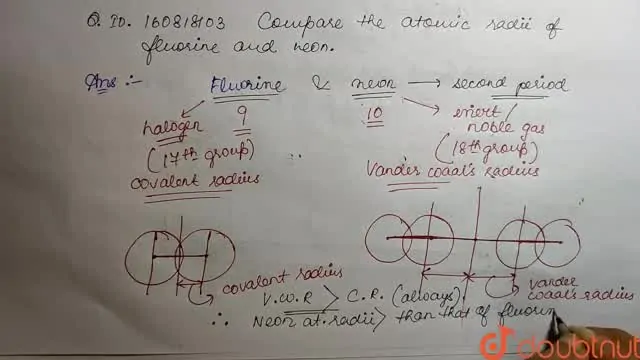 Q. ID. 160818103 Compare the atomic radii of
fluorine and neon.
Ans :- Fluorine & neon → second period
halogen 9 10 inert/noble gas
(17th group) (18th group)
covalent radius Vander waal's radius
covalent radius
V.W.R > C.R. (always)
vander
waal's radius
∴ Neon at. radii > than that of fluorin
doubtnut